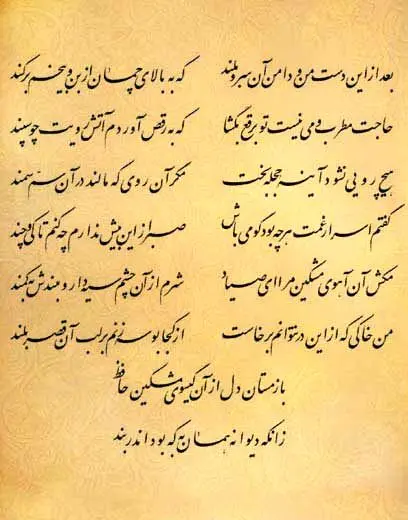 بعد از این دست من و دامن آن سرو بلند که به بالای چمان از بن و بیخم برکند
حاجت مطرب و می نیست تو برقع بگشا که به رقص آوردم آتش رویت چو سپند
هیچ رویی نشود آینه حجله بخت مگر آن روی که مالند در آن سم سمند
گفتم اسرار غمت هر چه بود گو می باش صبر از این بیش ندارم چه کنم تا کی و چند
مکش آن آهوی مشکین مرا ای صیاد شرم از آن چشم سیه دار و مبندش به کمند
من خاکی که از این در نتوانم برخاست از کجا بوسه زنم بر لب آن قصر بلند
باز مستان دل از آن گیسوی مشکین حافظ
زانکه دیوانه همان به که بود اندر بند